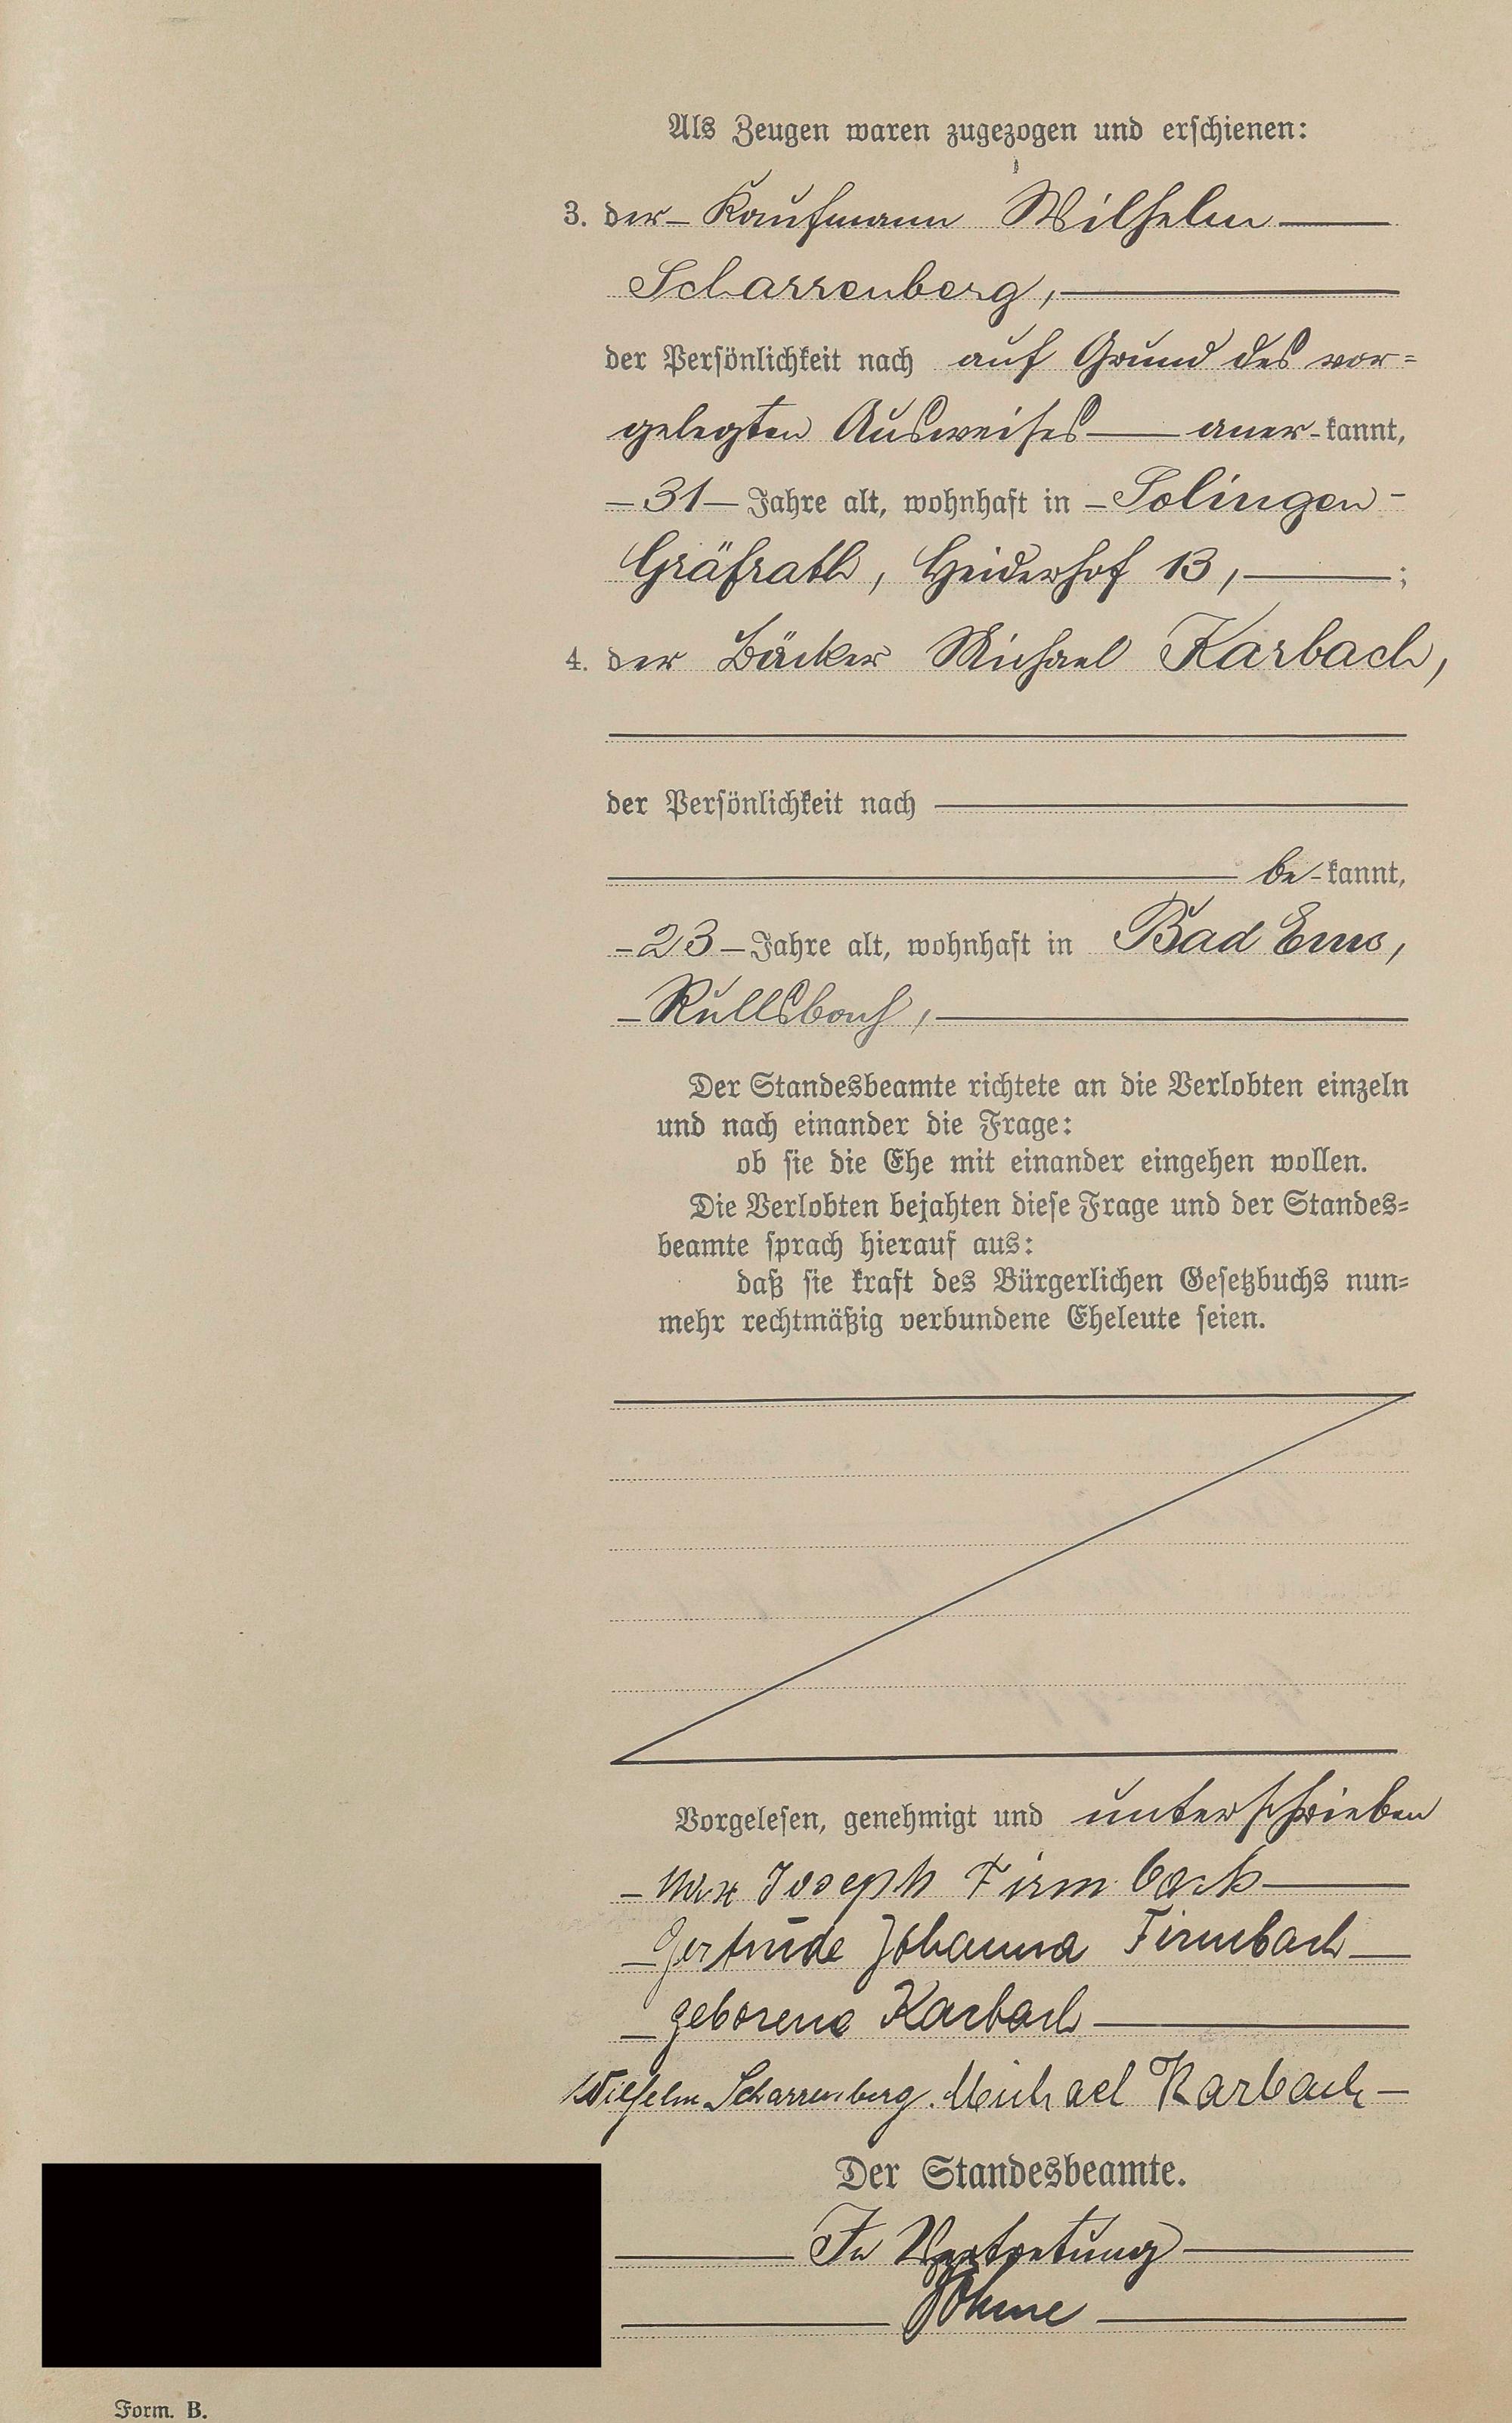 Als Zeugen waren zugezogen und erschienen:
3. der – Kaufmann Wilhelm —
Scharrenberg, —
der Persönlichkeit nach auf Grund des vor=
gelegten Ausweises — aner-kannt,
– 31 – Jahre alt, wohnhaft in – Solingen –
Gräfrath, Heiderhof 13, — ;
4. der Bäcker Michael Karbach,
der Persönlichkeit nach —
— be-kannt,
– 23 – Jahre alt, wohnhaft in Bad Ems,
– Küllsbach, —
Der Standesbeamte richtete an die Verlobten einzeln
und nach einander die Frage:
ob sie die Ehe mit einander eingehen wollen.
Die Verlobten bejahten diese Frage und der Standes=
beamte sprach hierauf aus:
daß sie kraft des Bürgerlichen Gesetzbuchs nun=
mehr rechtmäßig verbundene Eheleute seien.
Vorgelesen, genehmigt und unterschrieben
– Max Joseph Firmbach —
– Gertrude Johanna Firmbach —
– geborene Karbach —
Wilhelm Scharrenberg. Michael Karbach –
Der Standesbeamte.
— In Vertretung —
Form. B.